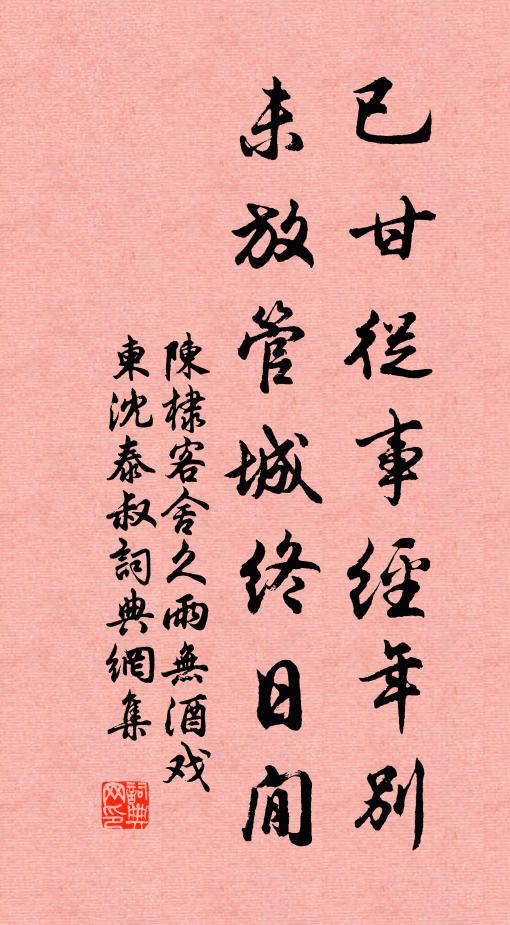 已甘從事經年別
未放管城終日閒
陳棣客舍久雨無酒戏
東沈泰叔詞典網集
詞典
网印